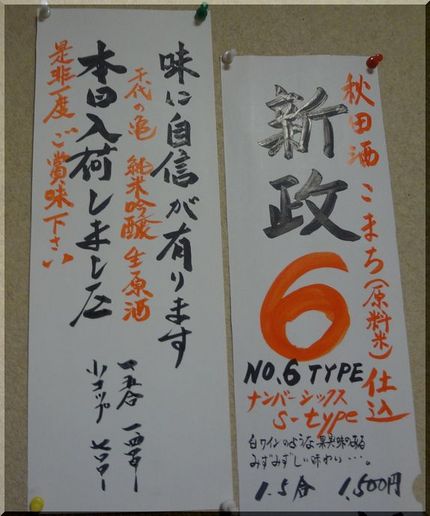 秋田酒こまち(原料米)仕込
新政
6
NO.6 TYPE
ナンバーシックス
S-type
白ワインのような果実味のある
みずみずしい味わい・・・。
1.5合 1,500円
味に自信が有ります
千代の亀 純米吟醸生原酒
本日入荷しました
是非一度ご賞味下さい